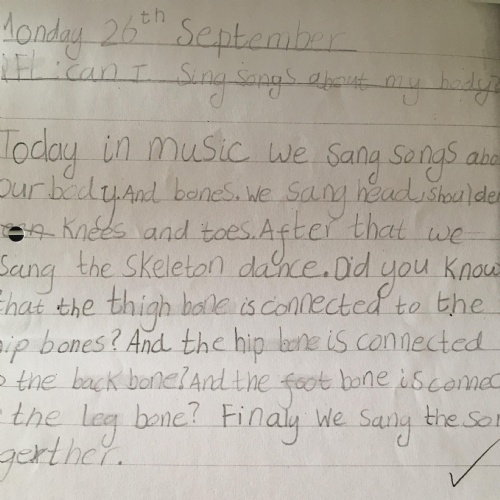 Monday 26th September
I can I sing songs about my body
Today in music we sang songs abo
our body. And bones. We sang head, shoulder
Knees and toes. After that we
sang the skeleton dance. Did you know
that the thigh bone is connected to the
hip bones? And the hip bone is connected
the back bone? And the foot bone is connec
the leg bone? Finaly we sang the son
gerther.